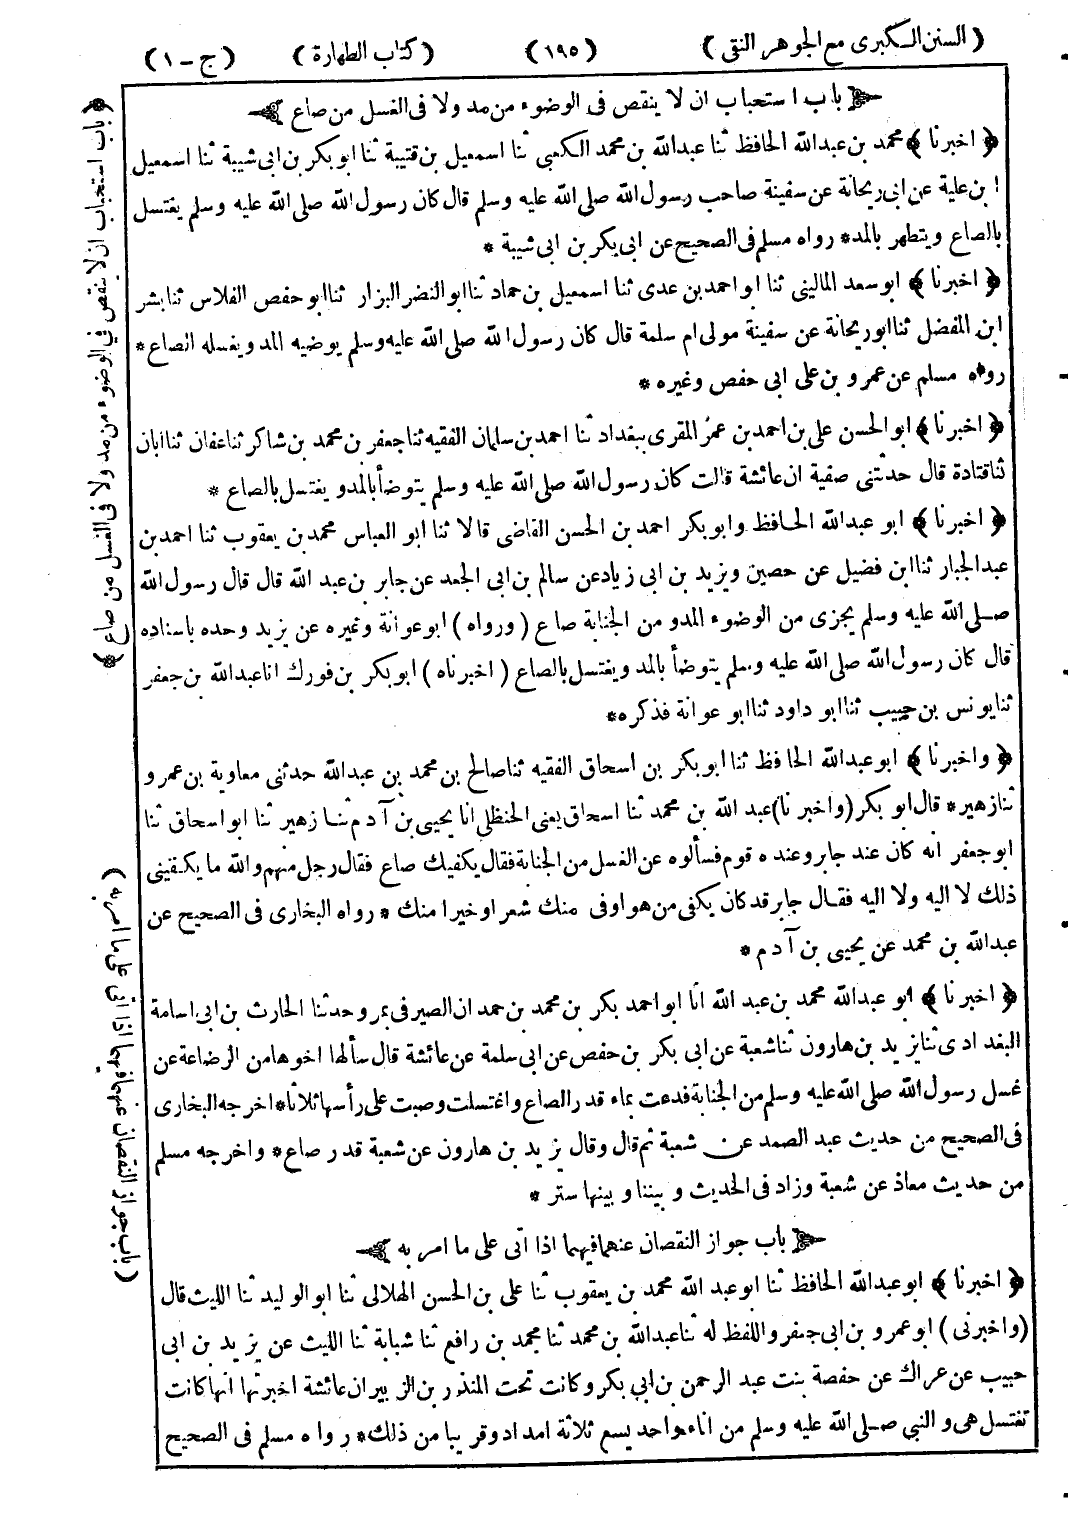 ( السنن الكبرى مع الجوهر النقى ) ( ١٩٥ ) ( كتاب الطهارة ) ( ج - ١ )
باب استحباب ان لا ينقص فى الوضوء من مد ولا فى الغسل من صاع
﴿ اخبرنا ﴾ محمد بن عبدالله الحافظ ثنا عبدالله بن محمد الكعبى ثنا اسمعيل بن قتيبة ثنا ابو بكر بن ابى شيبة ثنا اسمعيل
ابن علية عن ابى ريحانة عن سفينة صاحب رسول الله صلى الله عليه وسلم قال كان رسول الله صلى الله عليه وسلم يغتسل
بالصاع ويتطهر بالمد* رواه مسلم فى الصحيح عن ابى بكر بن ابى شيبة *
﴿ اخبرنا ﴾ ابو سعد المالينى ثنا ابو احمد بن عدى ثنا اسمعيل بن حماد ثنا ابو النضر البزار ثنا ابو حفص الفلاس ثنا بشر
ابن المفضل ثنا ابو ريحانة عن سفينة مولى ام سلمة قال كان رسول الله صلى الله عليه وسلم يوضيه المد ويغسله الصاع *
رواه مسلم عن عمرو بن على ابى حفص وغيره *
﴿ اخبرنا ﴾ ابو الحسن على بن احمد بن عمر المقرى ببغداد ثنا احمد بن سلمان الفقيه ثنا جعفر بن محمد بن شاكر ثنا عفان ثنا ابان
ثنا قتادة قال حدثتنى صفية ان عائشة قالت كان رسول الله صلى الله عليه وسلم يتوضأ بالمد و يغتسل بالصاع *
﴿ اخبرنا ﴾ ابو عبدالله الحافظ وابوبكر احمد بن الحسن القاضى قالا ثنا ابو العباس محمد بن يعقوب ثنا احمد بن
عبد الجبار ثنا ابن فضيل عن حصين ويزيد بن ابى زياد عن سالم بن ابى الجعد عن جابر بن عبد الله قال قال رسول الله
صلى الله عليه وسلم يجزى من الوضوء المد و من الجنابة صاع ( ورواه ) ابو عوانة وغيره عن يزيد وحده باسناده
قال كان رسول الله صلى الله عليه وسلم يتوضأ بالمد ويغتسل بالصاع ( اخبرناه ) ابو بكر بن فورك انا عبدالله بن جعفر
ثنا يونس بن حبيب ثنا ابو داود ثنا ابو عوانة فذكره*
﴿ واخبرنا ﴾ ابو عبدالله الحافظ ثنا ابو بكر بن اسحاق الفقيه ثنا صالح بن محمد بن عبدالله حدثنى معاوية بن عمرو
ثنا زهير* قال ابو بكر (واخبرنا) عبد الله بن محمد ثنا اسحاق يعنى الحنظلى انا يحيى بن آدم ثنا زهير ثنا ابو اسحاق ثنا
ابو جعفر انه كان عند جابر وعنده قوم فسألوه عن الغسل من الجنابة فقال يكفيك صاع فقال رجل منهم والله ما يكفينى
ذلك لا اليه ولا اليه فقال جابر قد كان يكفى من هو اوفى منك شعر اوخيرا منك * رواه البخارى فى الصحيح عن
عبدالله بن محمد عن يحيى بن آدم *
﴿ اخبرنا ﴾ ابو عبدالله محمد بن عبد الله انا ابو احمد بكر بن محمد بن حمدان الصيرفى بمرو حدثنا الحارث بن ابى اسامة
البغدادى ثنا يزيد بن هارون ثنا شعبة عن ابى بكر بن حفص عن ابى سلمة عن عائشة قال سألها اخوها من الرضاعة عن
غسل رسول الله صلى الله عليه وسلم من الجنابة فدعت بماء قدر الصاع واغتسلت وصبت على رأسها ثلاثا* اخرجه البخارى
فى الصحيح من حديث عبد الصمد عن شعبة ثم قال وقال يزيد بن هارون عن شعبة قدر صاع* واخرجه مسلم
من حديث معاذ عن شعبة وزاد فى الحديث و بيننا و بينها ستر *
باب جواز النقصان عنهما فيهما اذا اتى على ما امر به
﴿ اخبرنا ﴾ ابو عبدالله الحافظ ثنا ابو عبد الله محمد بن يعقوب ثنا على بن الحسن الهلالى ثنا ابو الوليد ثنا الليث قال
(واخبرنى ) ابو عمرو بن ابى جعفر واللفظ له ثنا عبدالله بن محمد ثنا محمد بن رافع ثنا شبابة ثنا الليث عن يزيد بن ابى
حبيب عن عراك عن حفصة بنت عبد الرحمن بن ابى بكر وكانت تحت المنذر بن الزبير ان عائشة اخبرتها انها كانت
تغتسل هى و النبى صلى الله عليه وسلم من اناء واحد يسع ثلاثة امداد وقريبا من ذلك* رواه مسلم فى الصحيح
﴿ باب استحباب ان لا ينقص فى الوضوء من مد ولا فى الغسل من صاع ﴾
( باب جواز النقصان عنهما فيهما اذا اتى على ما امر به )